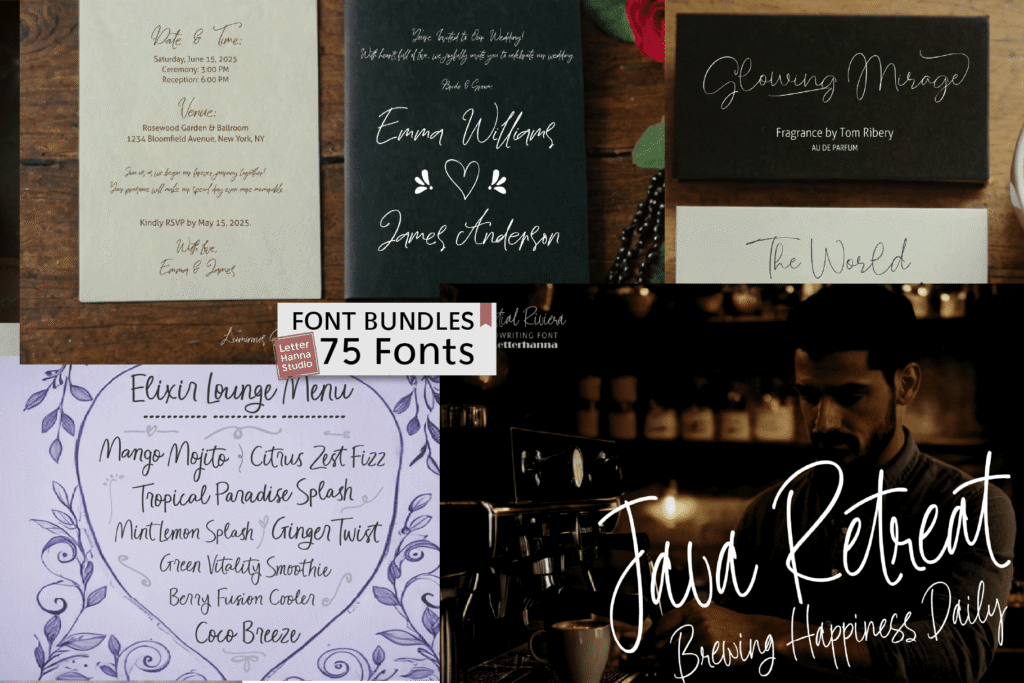 Date & Time:
Saturday, June 15, 2025
Ceremony: 3:00 PM
Reception: 6:00 PM
Venue:
Rosewood Garden & Ballroom
1234 Bloomfield Avenue, New York, NY
Join us as we begin our forever journey together!
Your presence will make our special day even more memorable.
Kindly RSVP by May 15, 2025.
With love,
Emma & James
You're Invited to Our Wedding!
With hearts full of love, we joyfully invite you to celebrate our wedding.
Bride & Groom
Emma Williams
James Anderson
Glowing Mirage
Fragrance by Tom Ribery
AU DE PARFUM
The World
Luminous
FONT BUNDLES
75 Fonts
Letter
Hanna
Studio
Riviera
FONT
etterhanna
Elixir Lounge Menu
Mango Mojito Citrus Zest Fizz
Tropical Paradise Splash
Mint Lemon Splash Ginger Twist
Green Vitality Smoothie
Berry Fusion Cooler
Coco Breeze
Java Retreat
Brewing Happiness Daily